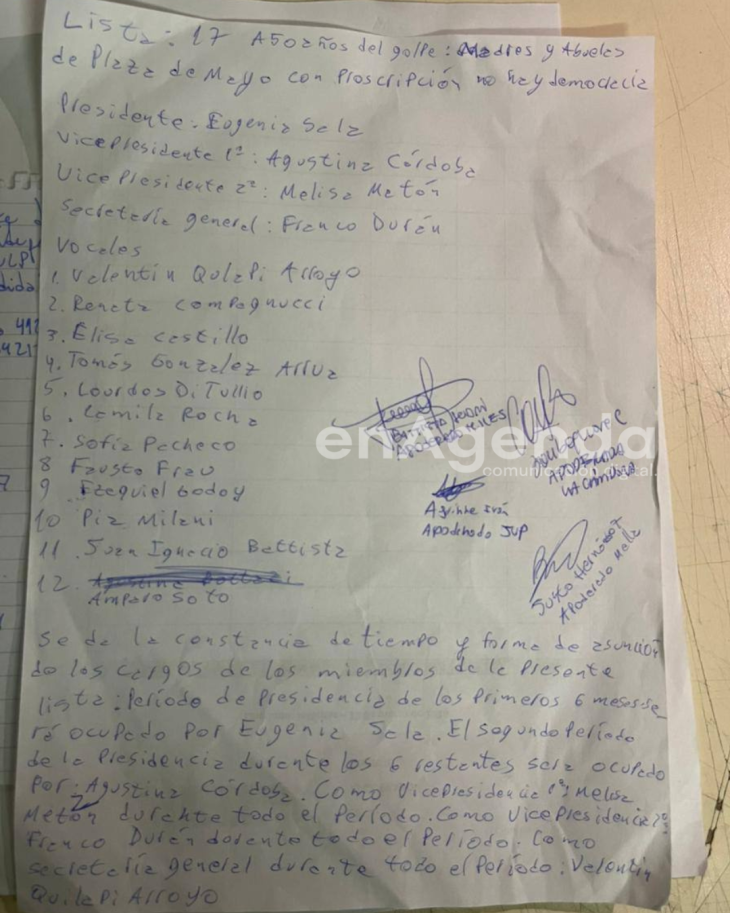 Lista: 17 A 50 años del golpe: Madres y Abuelas
de Plaza de Mayo con Proscripción no hay democracia
Presidente: Eugenia Sala
Vicepresidente 1ª: Agustina Córdoba
Vice Presidente 2ª: Melisa Matón
Secretaría general: Franco Durán
Vocales
1. Valentin Qulapi Arroyo
2. Renata Compagnucci
3. Élisa castillo
4. Tomás Gonzalez Arruz
5. Lourdes Di Tullio
6. Camila Rocha
7. Sofia Pacheco
8 Fausto Frau
9 Ezequiel Godoy
10 Pia Milani
11. Juan Ignacio Battista
12.
Amparo Soto
Battista Noomi
APODERADO MILES
APODERADO
LA CAMPORA
Aguirre Iván
Apoderado JUP
Justo Hernández
Apoderado Mella
enAgenda
comunicación digital.
Se da la constancia de tiempo y forma de asunción
de los cargos de los miembros de la presente
lista: Período de Presidencia de los Primeros 6 meses se
rá ocupado por Eugenia Sala. El segundo Período
de la Presidencia durante los 6 restantes sera ocupado
por: Agustina Córdoba. Como Vicepresidencia 1ª: Melisa
Matón durante todo el Período. Como Vicepresidencia 2ª:
Franco Durán durante todo el Período. Como
secretaría general durante todo el Período: Valentin
Quilapi Arroyo